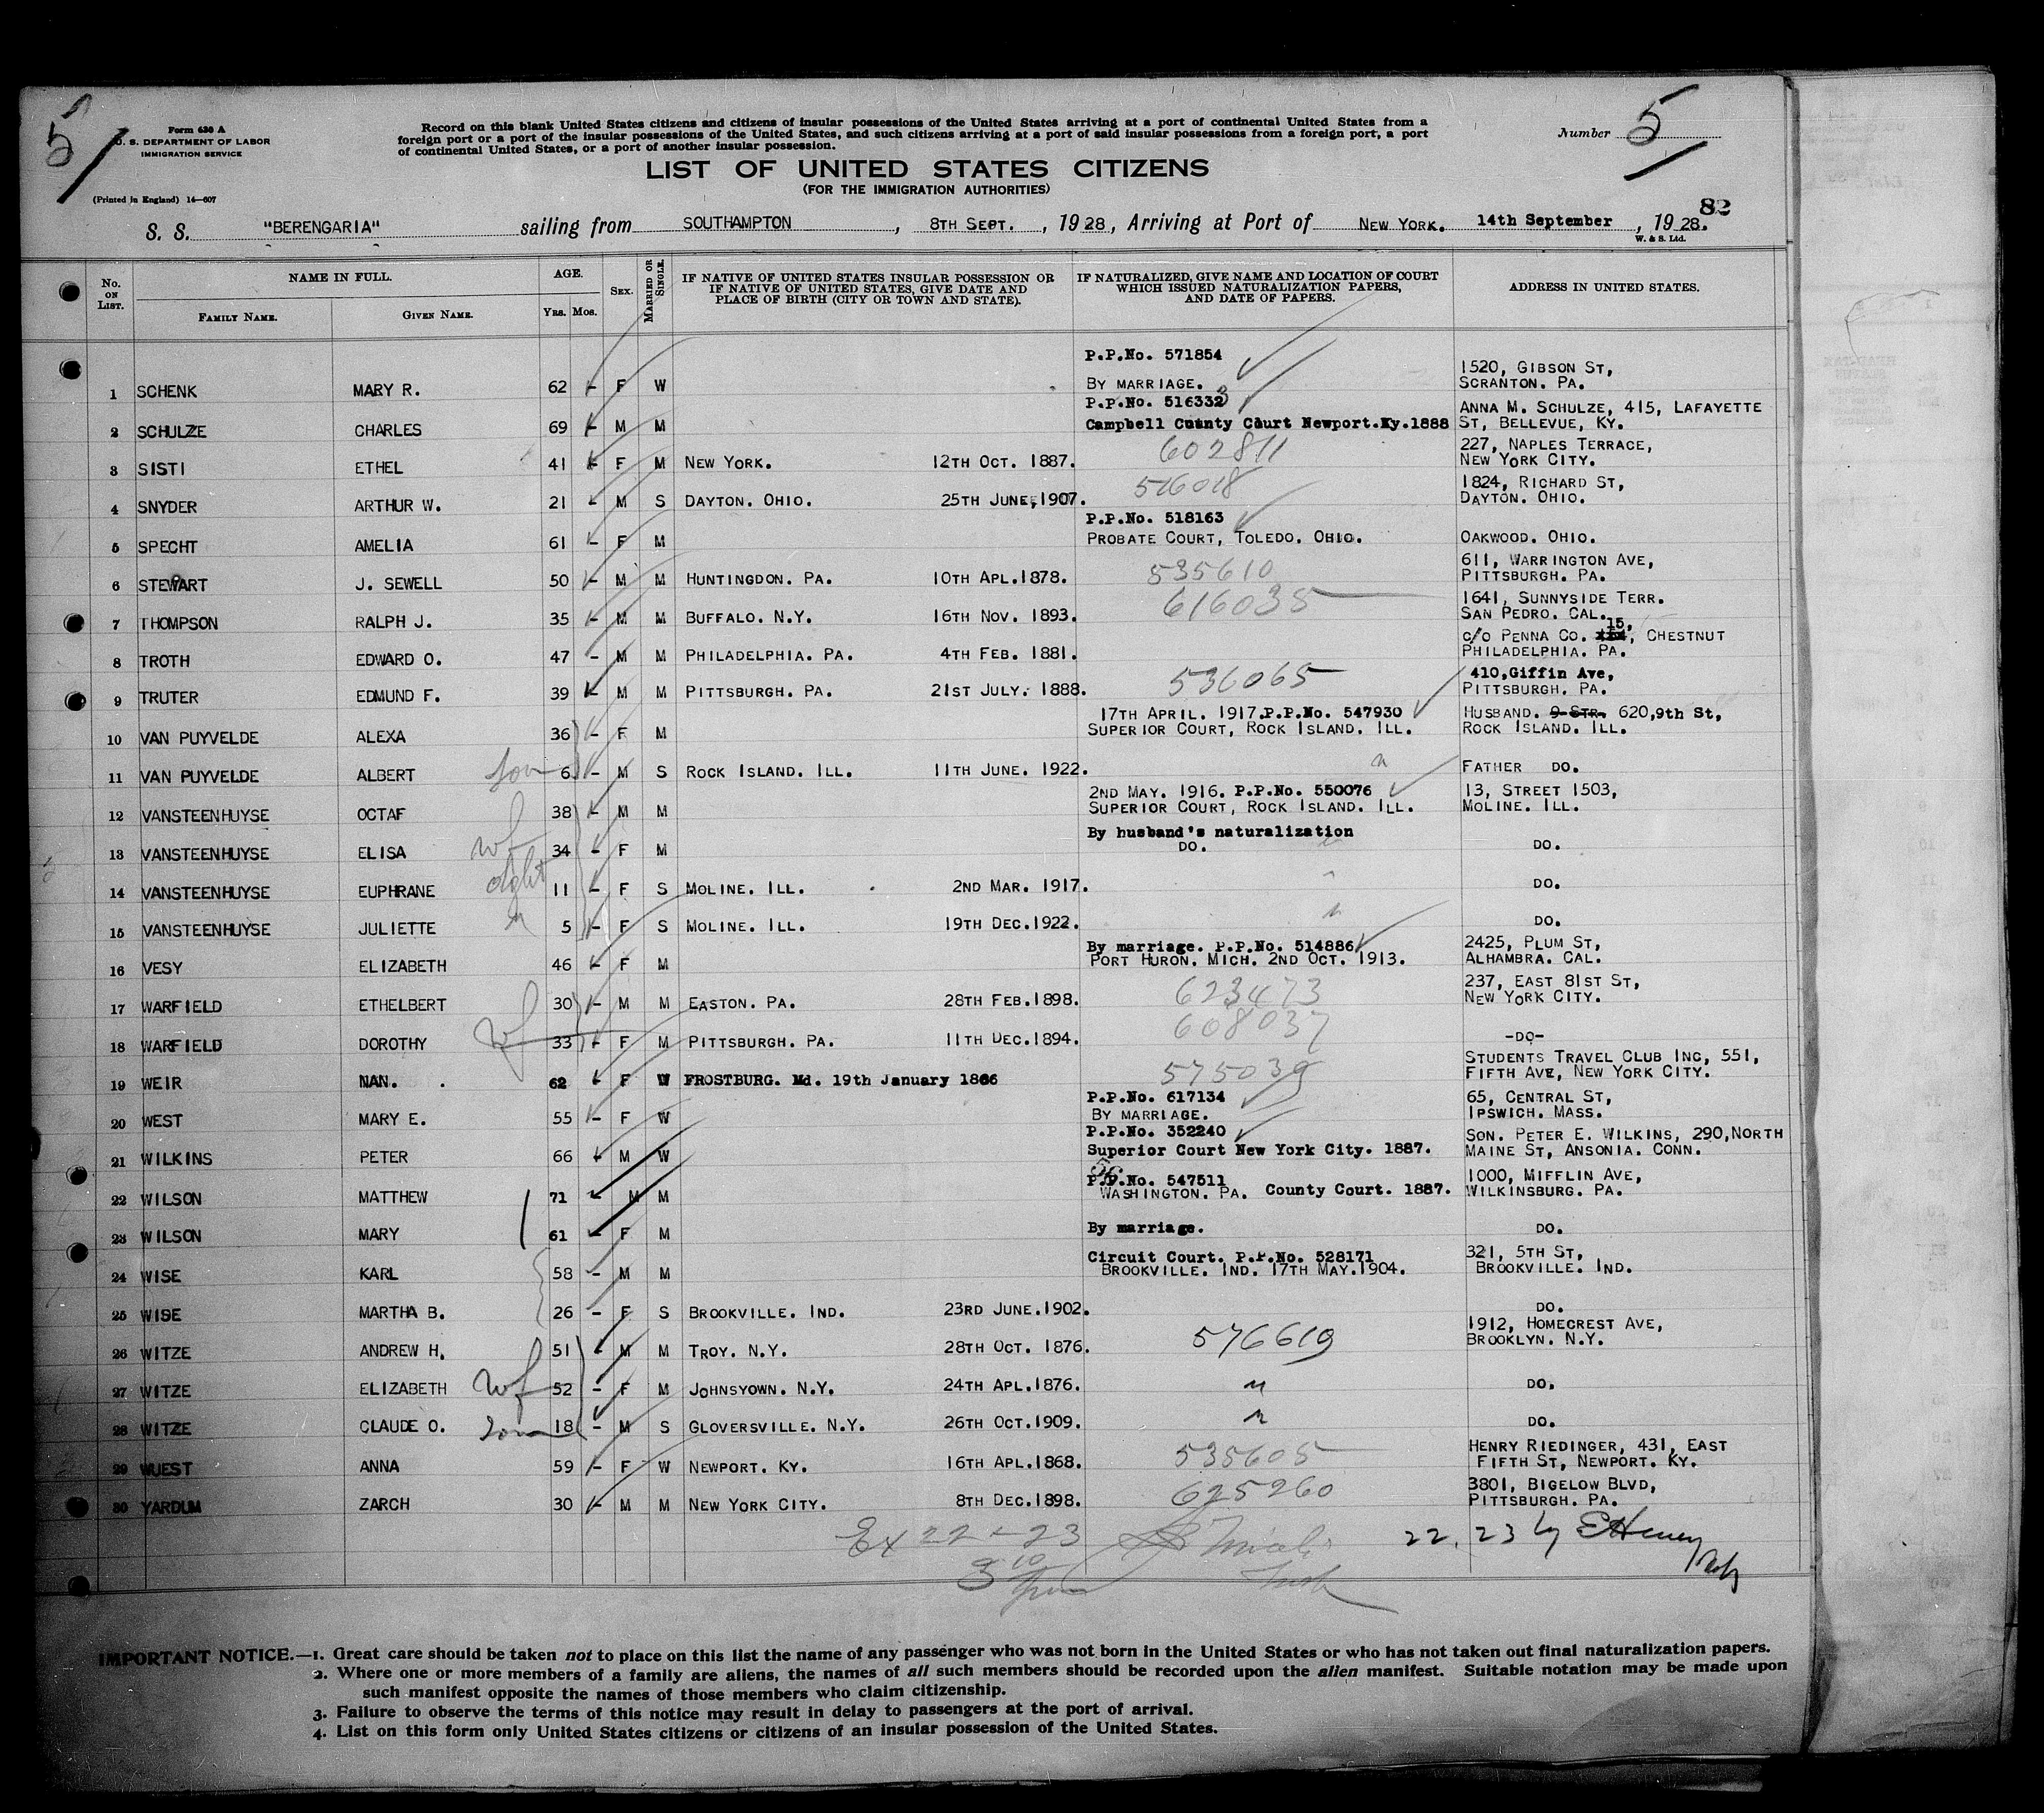 5
Form 630 A
U. S. DEPARTMENT OF LABOR
IMMIGRATION SERVICE
(Printed in England) 14—607
Record on this blank United States citizens and citizens of insular possessions of the United States arriving at a port of continental United States from a
foreign port or a port of the insular possessions of the United States, and such citizens arriving at a port of said insular possessions from a foreign port, a port
of continental United States, or a port of another insular possession.
Number 5
LIST OF UNITED STATES CITIZENS
(FOR THE IMMIGRATION AUTHORITIES)
82
S. S. "BERENGARIA" sailing from SOUTHAMPTON, 8TH SEPT., 1928, Arriving at Port of NEW YORK. 14th September, 1928.
W. & S. Ltd.
No. ON LIST. NAME IN FULL. FAMILY NAME. GIVEN NAME. AGE. YRS. MOS. SEX. MARRIED OR SINGLE. IF NATIVE OF UNITED STATES INSULAR POSSESSION OR IF NATIVE OF UNITED STATES, GIVE DATE AND PLACE OF BIRTH (CITY OR TOWN AND STATE). IF NATURALIZED, GIVE NAME AND LOCATION OF COURT WHICH ISSUED NATURALIZATION PAPERS, AND DATE OF PAPERS. ADDRESS IN UNITED STATES.
1 SCHENK MARY R. 62 - F W P.P.No. 571854 BY MARRIAGE. 1520, GIBSON ST, SCRANTON. PA.
2 SCHULZE CHARLES 69 - M M P.P.No. 516332 3 Campbell County Court Newport.Ky.1888 ANNA M. SCHULZE, 415, LAFAYETTE ST, BELLEVUE, KY.
3 SISTI ETHEL 41 - F M NEW YORK. 12TH OCT. 1887. 602811 227, NAPLES TERRACE, NEW YORK CITY.
4 SNYDER ARTHUR W. 21 - M S DAYTON. OHIO. 25TH JUNE, 1907. 516018 1824, RICHARD ST, DAYTON. OHIO.
5 SPECHT AMELIA 61 - F M P.P.No. 518163 PROBATE COURT, TOLEDO. OHIO. OAKWOOD. OHIO.
6 STEWART J. SEWELL 50 - M M HUNTINGDON. PA. 10TH APL.1878. 535610 611, WARRINGTON AVE, PITTSBURGH. PA.
7 THOMPSON RALPH J. 35 - M M BUFFALO. N.Y. 16TH NOV. 1893. 616035 1641, SUNNYSIDE TERR. SAN PEDRO. CAL.
8 TROTH EDWARD O. 47 - M M PHILADELPHIA. PA. 4TH FEB. 1881. C/O PENNA CO. 15, CHESTNUT PHILADELPHIA. PA.
9 TRUTER EDMUND F. 39 - M M PITTSBURGH. PA. 21ST JULY. 1888. 536065 410,Giffin Ave, PITTSBURGH. PA.
10 VAN PUYVELDE ALEXA 36 - F M 17TH APRIL. 1917.P.P.No. 547930 SUPERIOR COURT, ROCK ISLAND. ILL. HUSBAND. 9 STR. 620,9th St, ROCK ISLAND. ILL.
11 VAN PUYVELDE ALBERT son 6 - M S ROCK ISLAND. ILL. 11TH JUNE. 1922. " FATHER DO.
12 VANSTEENHUYSE OCTAF 38 - M M 2ND MAY. 1916. P.P.No. 550076 SUPERIOR COURT, ROCK ISLAND. ILL. 13, STREET 1503, MOLINE. ILL.
13 VANSTEENHUYSE ELISA wf 34 - F M By husband's naturalization DO. DO.
14 VANSTEENHUYSE EUPHRANE dght 11 - F S MOLINE. ILL. 2ND MAR. 1917. " DO.
15 VANSTEENHUYSE JULIETTE " 5 - F S MOLINE. ILL. 19TH DEC.1922. " DO.
16 VESY ELIZABETH 46 - F M By marriage. P.P.No. 514886 PORT HURON. MICH. 2ND OCT. 1913. 2425, PLUM ST, ALHAMBRA. CAL.
17 WARFIELD ETHELBERT 30 - M M EASTON. PA. 28TH FEB.1898. 623473 237, EAST 81ST ST, NEW YORK CITY.
18 WARFIELD DOROTHY wf 33 - F M PITTSBURGH. PA. 11TH DEC.1894. 608037 -DO-
19 WEIR NAN. 62 - F W FROSTBURG. Md. 19th January 1866 575039 STUDENTS TRAVEL CLUB INC, 551, FIFTH AVE, NEW YORK CITY.
20 WEST MARY E. 55 - F W P.P.No. 617134 BY MARRIAGE. 65, CENTRAL ST, IPSWICH. MASS.
21 WILKINS PETER 66 - M W P.P.No. 352240 Superior Court New York City. 1887. SON. PETER E. WILKINS, 290,NORTH MAINE ST, ANSONIA. CONN.
22 WILSON MATTHEW 71 - M M P.P.No. 547511 WASHINGTON. PA. County Court. 1887. 1000, MIFFLIN AVE, WILKINSBURG. PA.
23 WILSON MARY 61 - F M By marriage. DO.
24 WISE KARL 58 - M M Circuit Court. P.P.No. 528171 BROOKVILLE. IND. 17TH MAY.1904. 321, 5TH ST, BROOKVILLE. IND.
25 WISE MARTHA B. 26 - F S BROOKVILLE. IND. 23RD JUNE.1902. DO.
26 WITZE ANDREW H. 51 - M M TROY. N.Y. 28TH OCT. 1876. 576619 1912, HOMECREST AVE, BROOKLYN. N.Y.
27 WITZE ELIZABETH wf 52 - F M JOHNSYOWN. N.Y. 24TH APL.1876. " DO.
28 WITZE CLAUDE O. son 18 - M S GLOVERSVILLE. N.Y. 26TH OCT.1909. " DO.
29 WUEST ANNA 59 - F W NEWPORT. KY. 16TH APL.1868. 535605 HENRY RIEDINGER, 431, EAST FIFTH ST, NEWPORT. KY.
30 YARDUM ZARCH 30 - M M NEW YORK CITY. 8TH DEC.1898. 625260 3801, BIGELOW BLVD, PITTSBURGH. PA.
Ex 22-23
22. 23 by EHenry
IMPORTANT NOTICE.—1. Great care should be taken not to place on this list the name of any passenger who was not born in the United States or who has not taken out final naturalization papers.
2. Where one or more members of a family are aliens, the names of all such members should be recorded upon the alien manifest. Suitable notation may be made upon
such manifest opposite the names of those members who claim citizenship.
3. Failure to observe the terms of this notice may result in delay to passengers at the port of arrival.
4. List on this form only United States citizens or citizens of an insular possession of the United States.